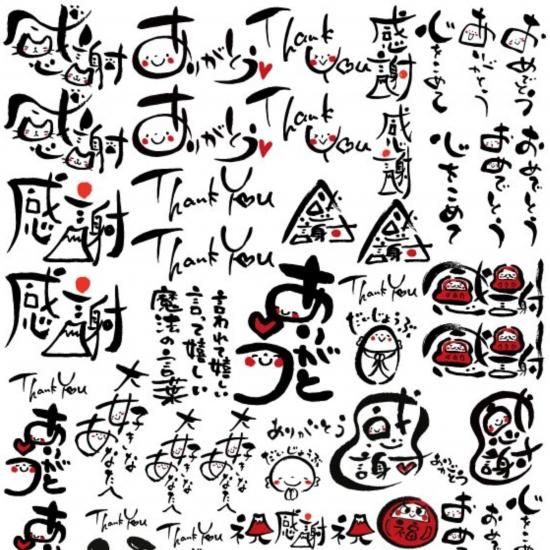 感謝
ありがとう
Thank You
感謝
心をこめて
ありがとう
おめでとう
感謝
ありがとう
Thank You
感謝
心をこめて
おめでとう
おめでとう
感謝
Thank You
感謝
感謝
Thank You
感謝
言われて嬉しい
言って嬉しい
魔法の言葉
ありがとう
Thank You
だいじょうぶ
感謝
感謝
Thank You
ありがとう
大好きなあなたへ
大好きなあなたへ
大好きなあなたへ
ありがとう
だいじょうぶ
感謝
ありがとう
感謝
Thank You
Thank You
祝
感謝
祝
福
心をこめて